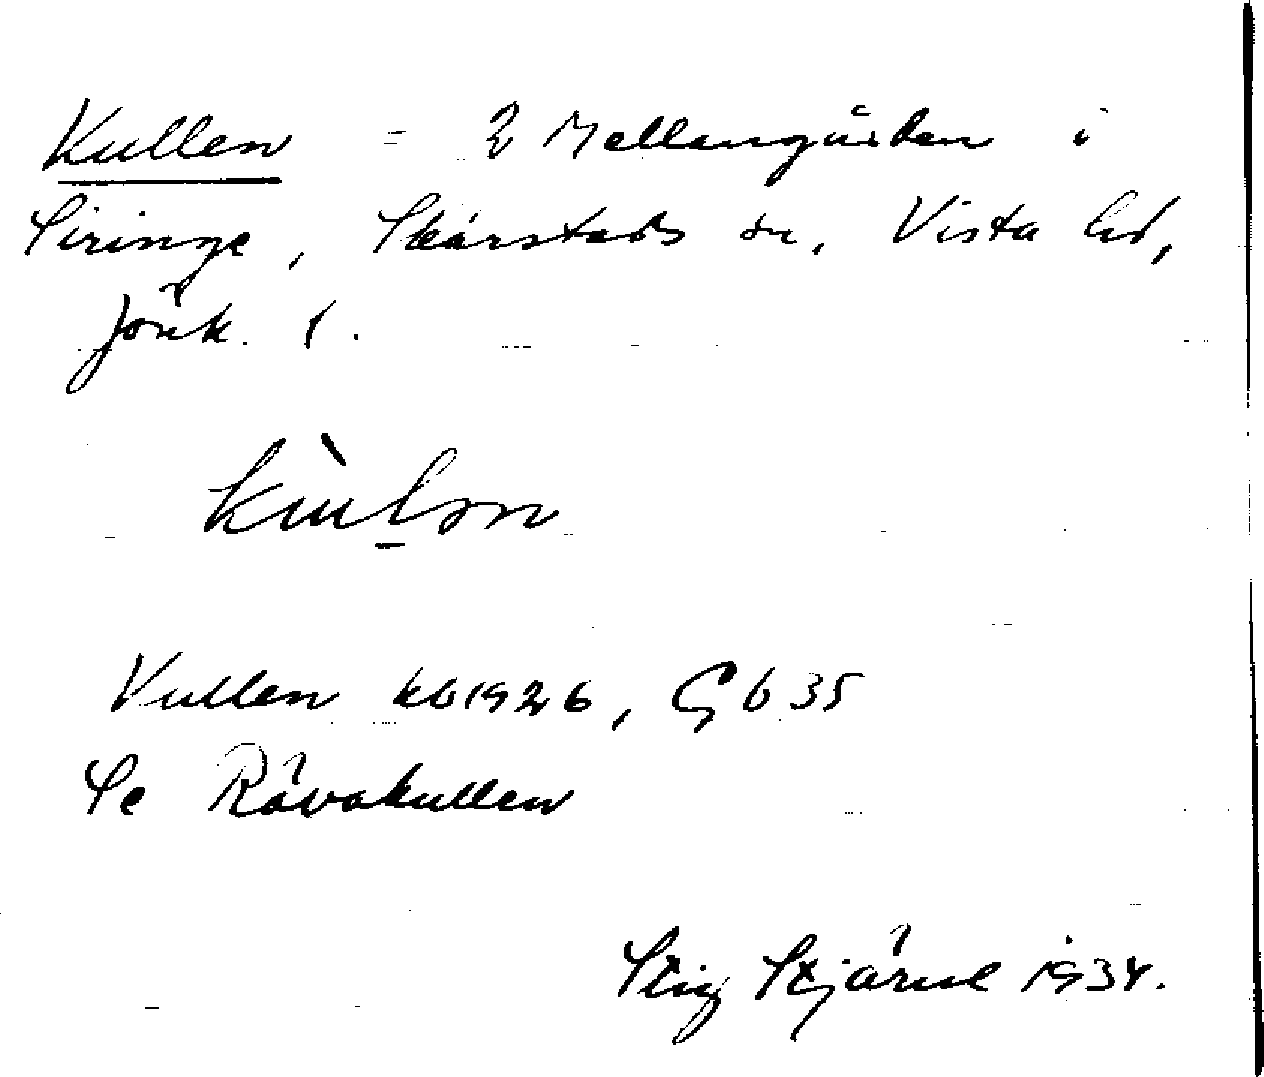 Kullen = 2 Mellangården i
Siringe, Skärstads sn, Vista hd,
Jönk. l.
Kullen kb 1926, Gb 35
Se Rävakullen
Stig Stjärne 1934.